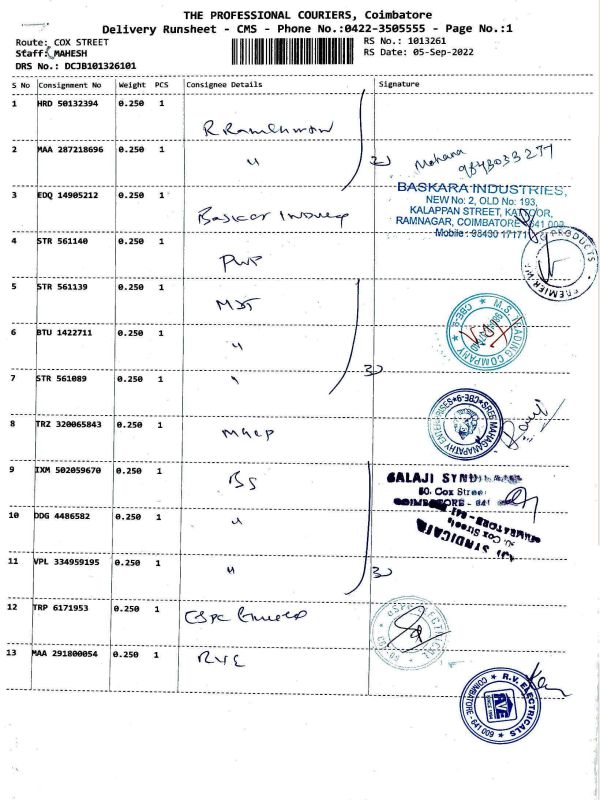 THE PROFESSIONAL COURIERS, Coimbatore
Delivery Runsheet - CMS - Phone No.:0422-3505555 - Page No.:1
Route: COX STREET
RS No.: 1013261
Staff: MAHESH
RS Date: 05-Sep-2022
DRS No.: DCJB101326101
S No Consignment No Weight PCS Consignee Details Signature
1 HRD 50132394 0.250 1
2 MAA 287218696 0.250 1 "
Mohana
9843033277
3 EDQ 14905212 0.250 1
BASKARA INDUSTRIES,
NEW No: 2, OLD No: 193,
KALAPPAN STREET, KATTOOR,
RAMNAGAR, COIMBATORE - 641 009
Mobile : 98430 17171
4 STR 561140 0.250 1 PWP
PRODUCTS
5 STR 561139 0.250 1 MDT
M.S. TRADING COMPANY
CBE-9
6 BTU 1422711 0.250 1 "
7 STR 561089 0.250 1 "
8 TRZ 320065843 0.250 1
SREE MAHAGANAPATHY ENTERPRISES
CBE-9
9 IXM 502059670 0.250 1 BS
BALAJI SYNDICATE
50, Cox Street
COIMBATORE - 641
10 DDG 4486582 0.250 1 "
SYNDICATE
Cox Street
COIMBATORE - 641
11 VPL 334959195 0.250 1 "
12 TRP 6171953 0.250 1
13 MAA 291800054 0.250 1 RVE
R.V. ELECTRICALS
RVE
COIMBATORE - 641 009